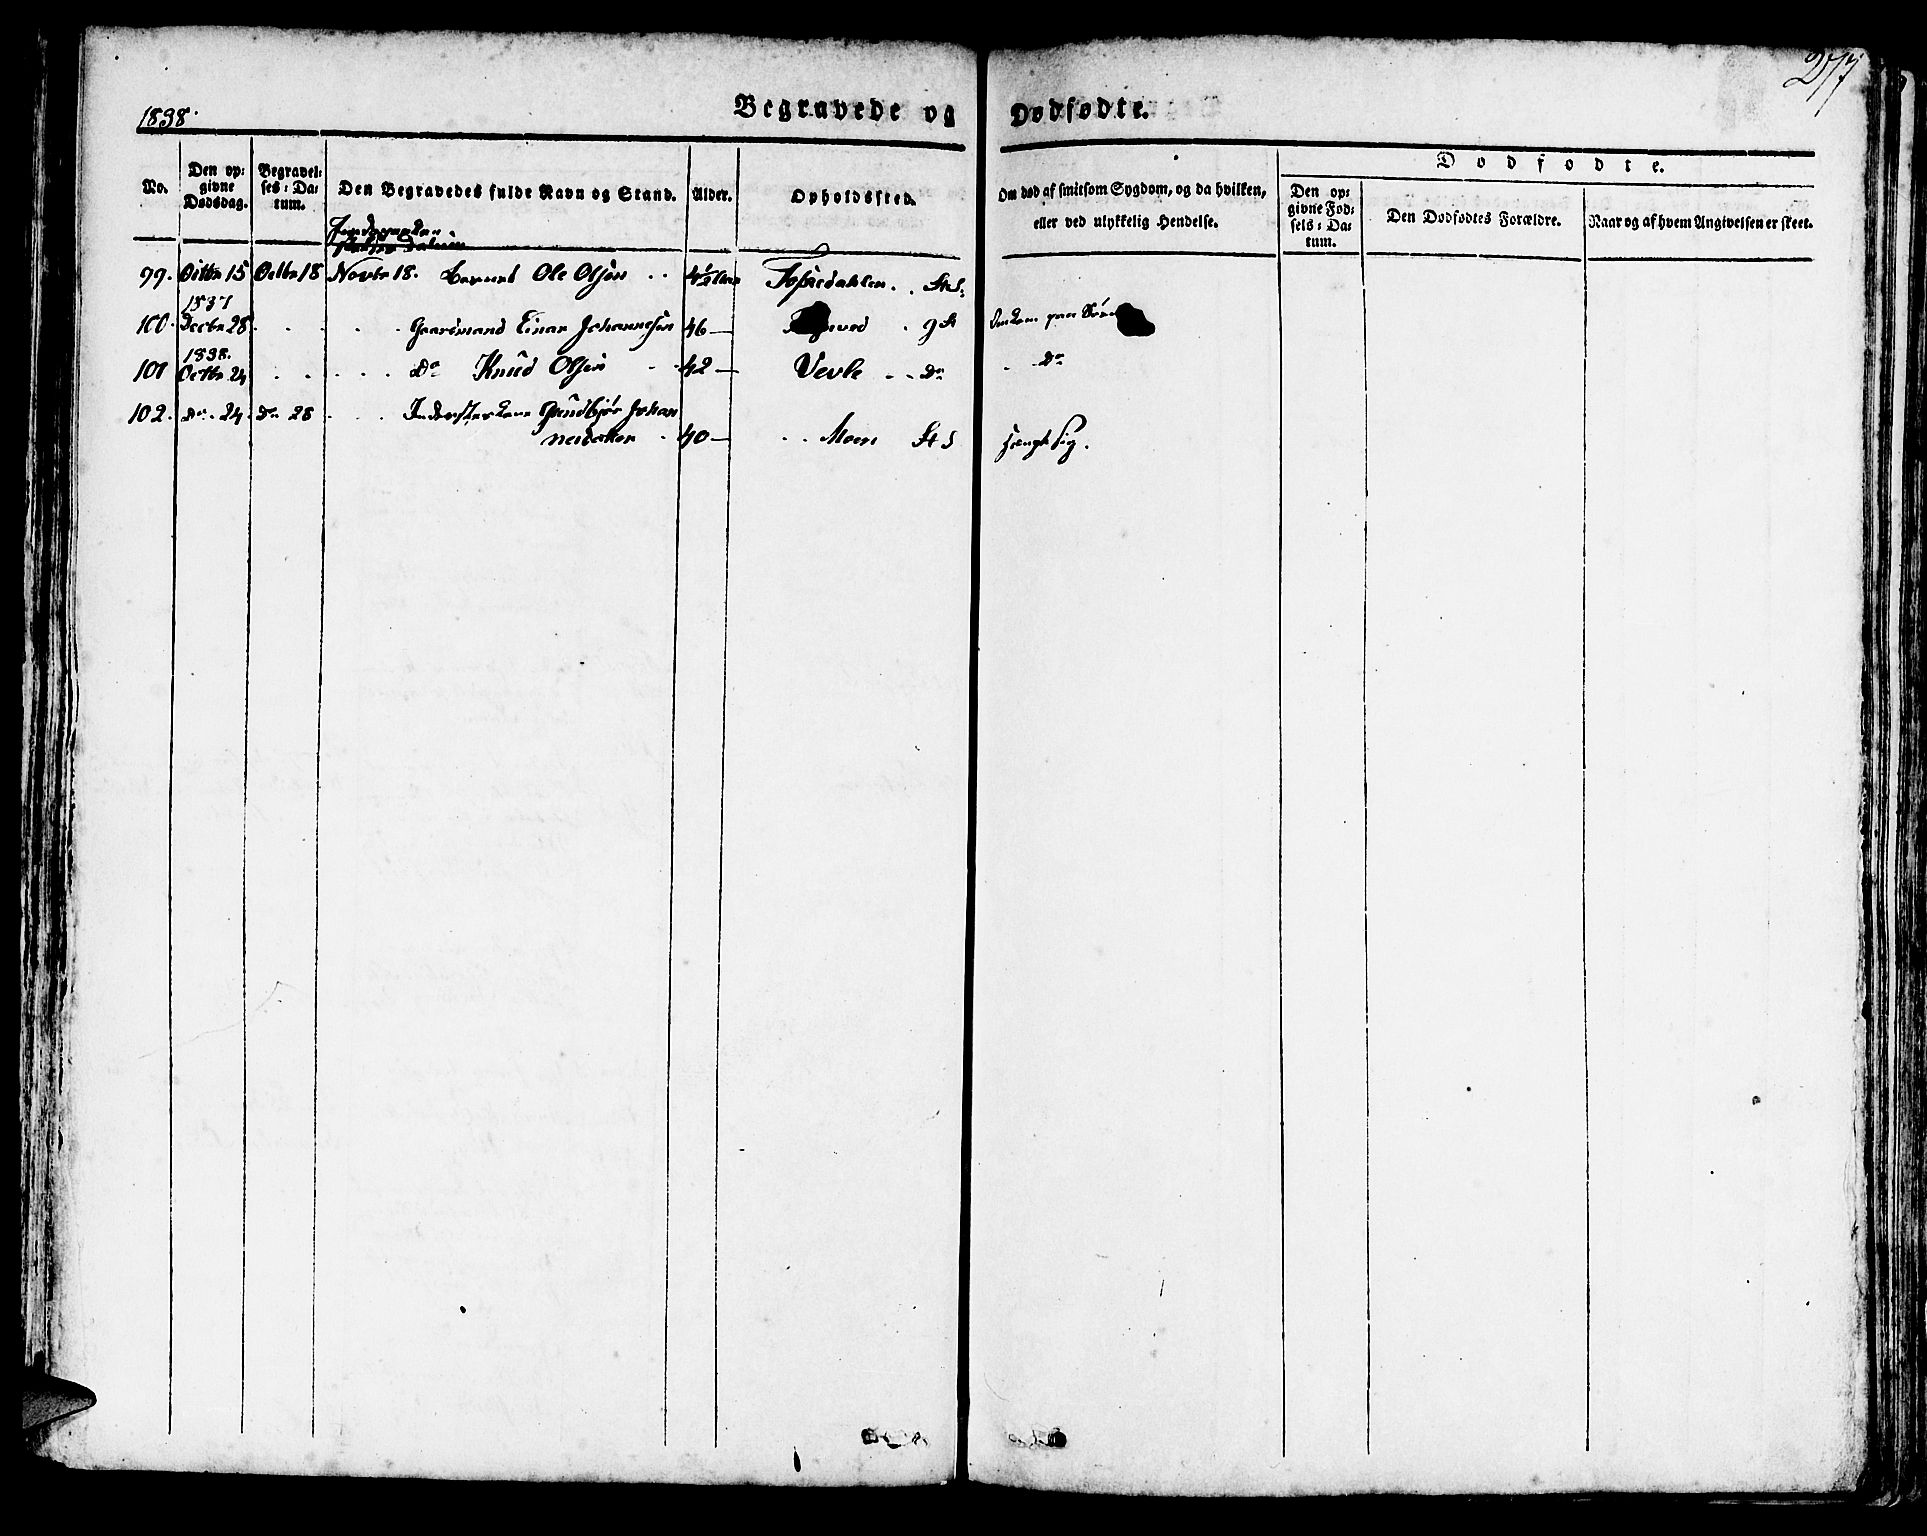 277
1838.
Begravede og Dødfødte.
No.
Den opgivne Dødsdag.
Begravelses-Datum.
Den Begravedes fulde Navn og Stand.
Alder.
Opholdssted.
Om død af smitsom Sygdom, og da hvilken, eller ved ulykkelig Hendelse.
Dødfødte.
Den opgivne Fødsels-Datum.
Den Dødfødtes Forældre.
Naar og af hvem Angivelsen er skeet.
Jordspaaken
99. Octbr 15 Octbr 18 Novbr 18. Barnet Ole Olsen 4½ St S.
1837
100. Decbr 28 Gaardmand Einar Johannesen 46 — g St Omkom paa
1838.
101 Octbr 24 Do Knud Olsen 42 — Vevle Do Do
102. Do 24 Do 28 Gundbjør Johan
nesdatter 40 — Moen St S